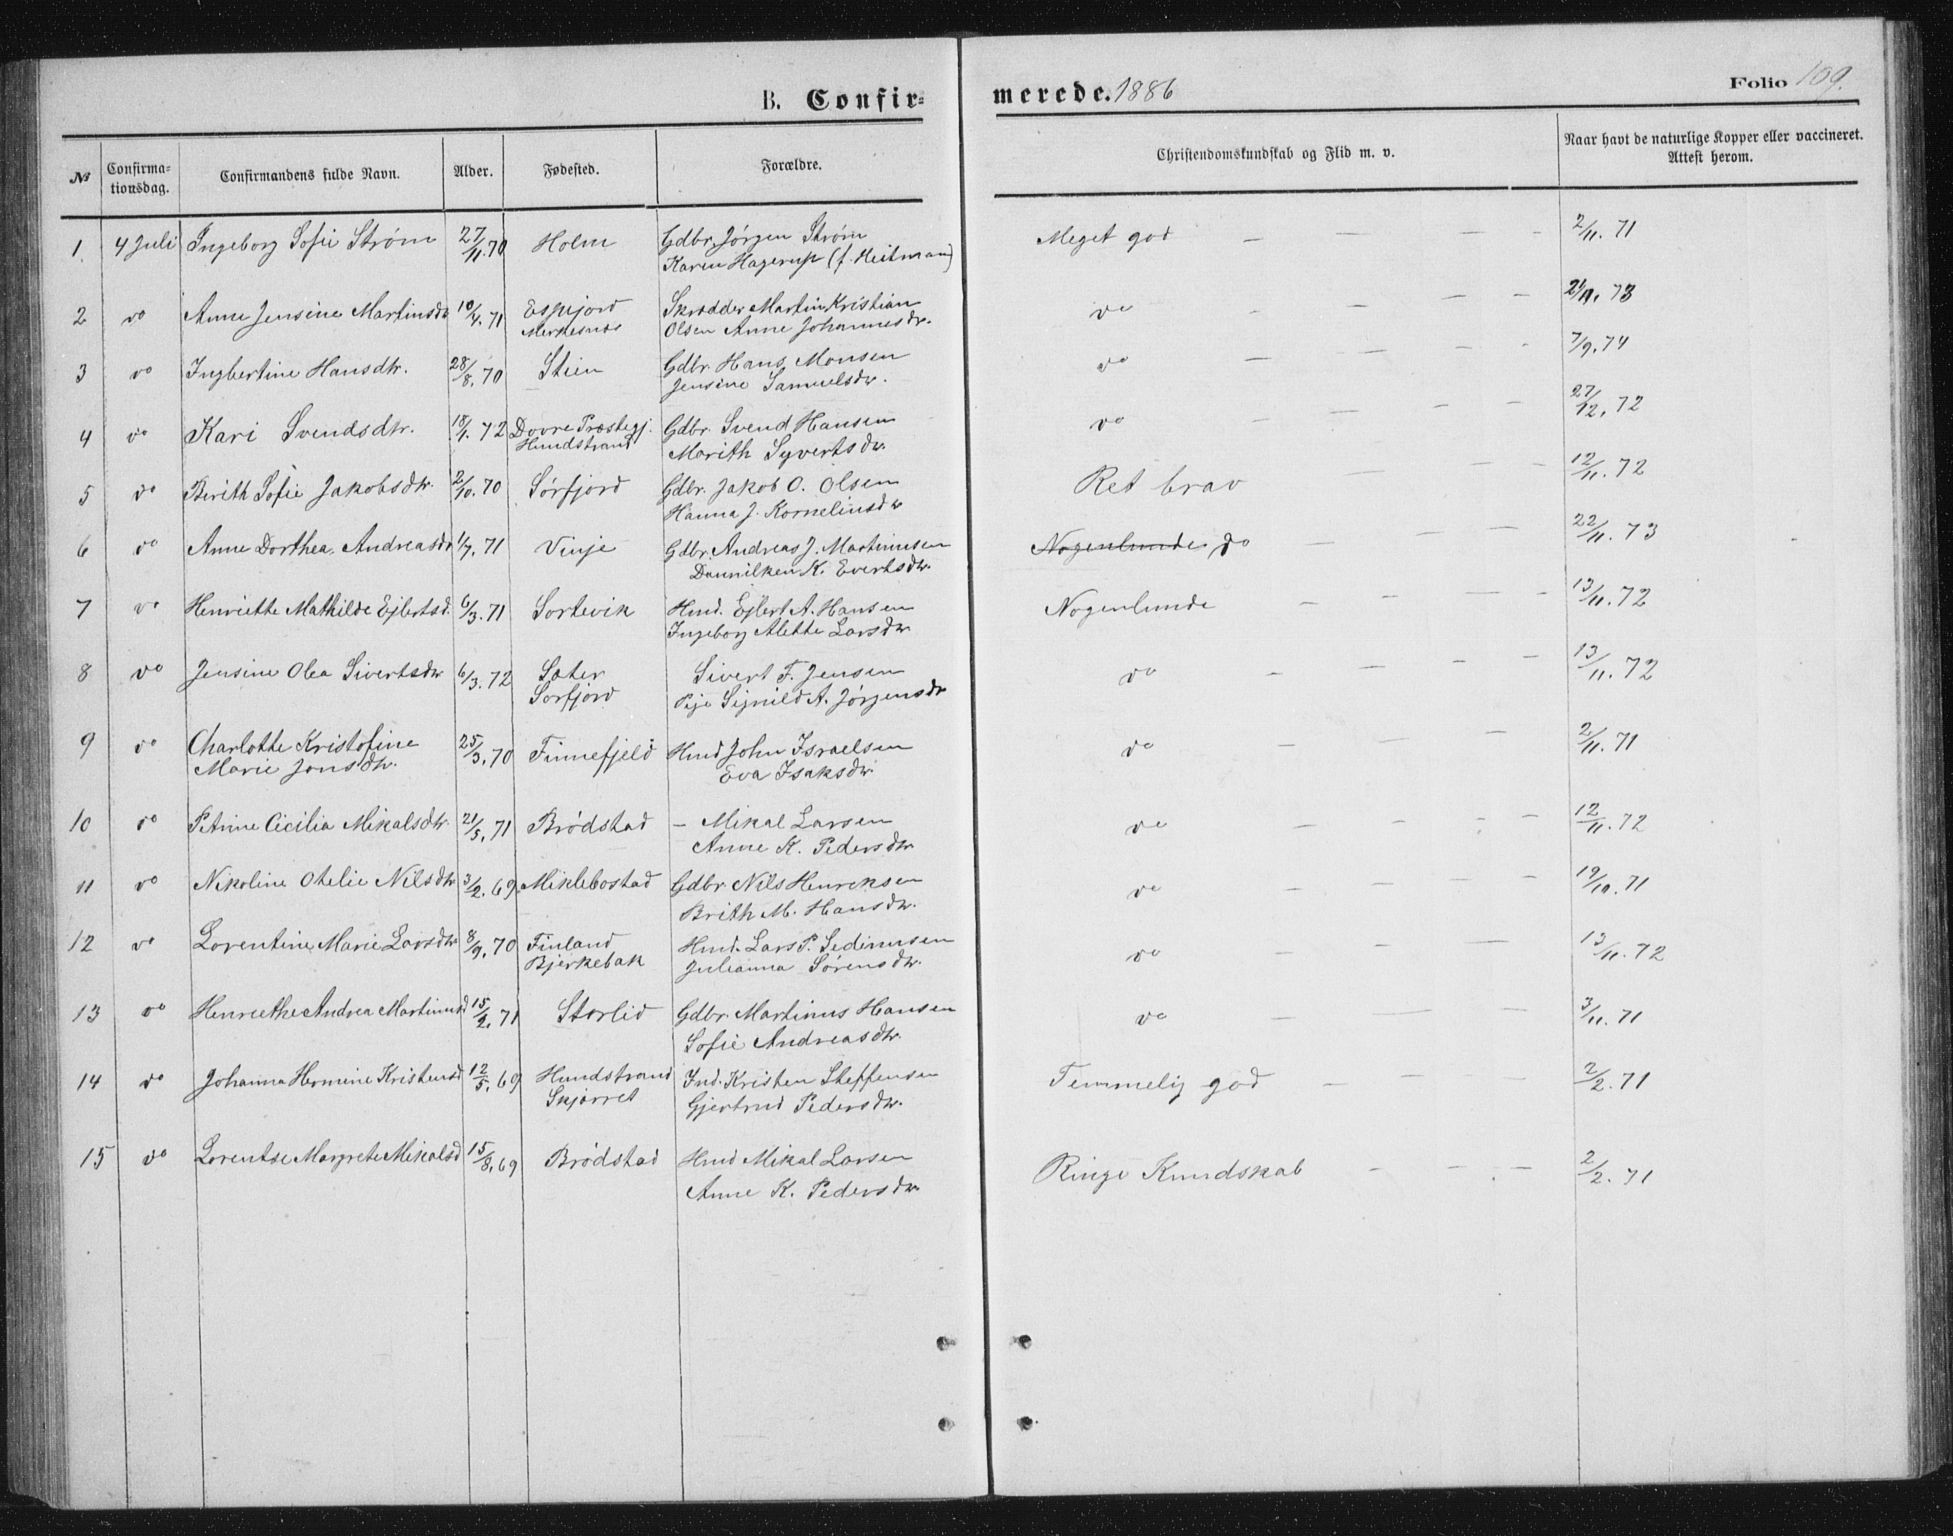 B. Confirmerede. 1886
Folio 109.
№ Confirmationsdag. Confirmandens fulde Navn. Alder. Fødested. Forældre. Christendomskundskab og Flid m. v. Naar havt de naturlige Kopper eller vaccineret. Attest herom.
1 4 Juli Ingeborg Sofie Strøm 27/11.70 Holm Gdbr. Jørgen Strøm Meget god — — — — 2/11.71
Karen Hagerup (f. Heitman)
2 do Anne Jensine Martinsdtr 10/4.71 Espejord Skrædder Martin Kristian do - — — — 73
Olsen Anne Johannesdtr.
3 do Ingbertine Hansdtr. 28/8.70 Stien Gdbr. Hans Monsen do — — — - 7/9.74
Jensine Samuelsdtr.
4 do Kari Svendsdtr. 18/1.72 Dovre Præstegj. Gdbr. Svend Hansen do — — — — 27/12.72
Hundstrand Marith Syvertsdtr
5 do Berith Sofie Jakobsdtr. 2/10.70 Sørfjord Gdbr. Jakob O. Olsen Ret brav — — — 12/11.72
Hanna J. Korneliusdtr
6 do Anne Dorthea Andreasdtr 1/7.71 Vinje Gdbr. Andreas J. Martinusen Nogenlunde do — — — 22/11.73
Dannilken K. Evertsdtr.
7 do Henriette Mathilde Ejlertsd. 6/3.71 Sortevik Hmd. Ejlert A. Hansen Nogenlunde — — — — 13/11.72
Ingeborg Alette Larsdtr
8 do Jensine Olea Sivertsdtr 6/3.72 Sæter Sivert F. Jensen do - — — — 13/11.72
Sorfjord Pige Signild A. Jørgensdtr
9 do Charlotte Kristofine 25/3.70 Finnefjeld Hmd John Israelsen do — — — 2/11.71
Marie Jonsdtr. Eva Isaksdtr
10 do Petrine Cicilia Mikalsdtr 21/5.71 Brødstad — Mikal Larsen do — — - — 12/11.72
Anne K. Pedersdtr
11 do Nikoline Otelie Nilsdtr 3/2.69 Miklebostad Gdbr Nils Henriksen do — — — — 19/10.71
Brith M. Hansdtr.
12 do Lorentine Marie Larsdtr 8/9.70 Finland Hmd. Lars P. Sedinusen do — — — 13/11.72
Bjerkebak Julianna Sørensdtr.
13 do Henriethe Andrea Martinusd 15/2.71 Storlid Gdbr. Martinus Hansen do — — — 3/11.71
Sofie Andreasdtr.
14 do Johanna Hermine Kristensd 12/5.69 Hundstrand Ind. Kristen Steffensen Temmelig god — — — — 2/2.71
Gjertrud Pedersdtr.
15 do Lorentse Margrete Mikalsd 15/8.69 Brødstad Hmd Mikal Larsen Ringe Kundskab — — — 2/2.71
Anne K. Pedersdtr